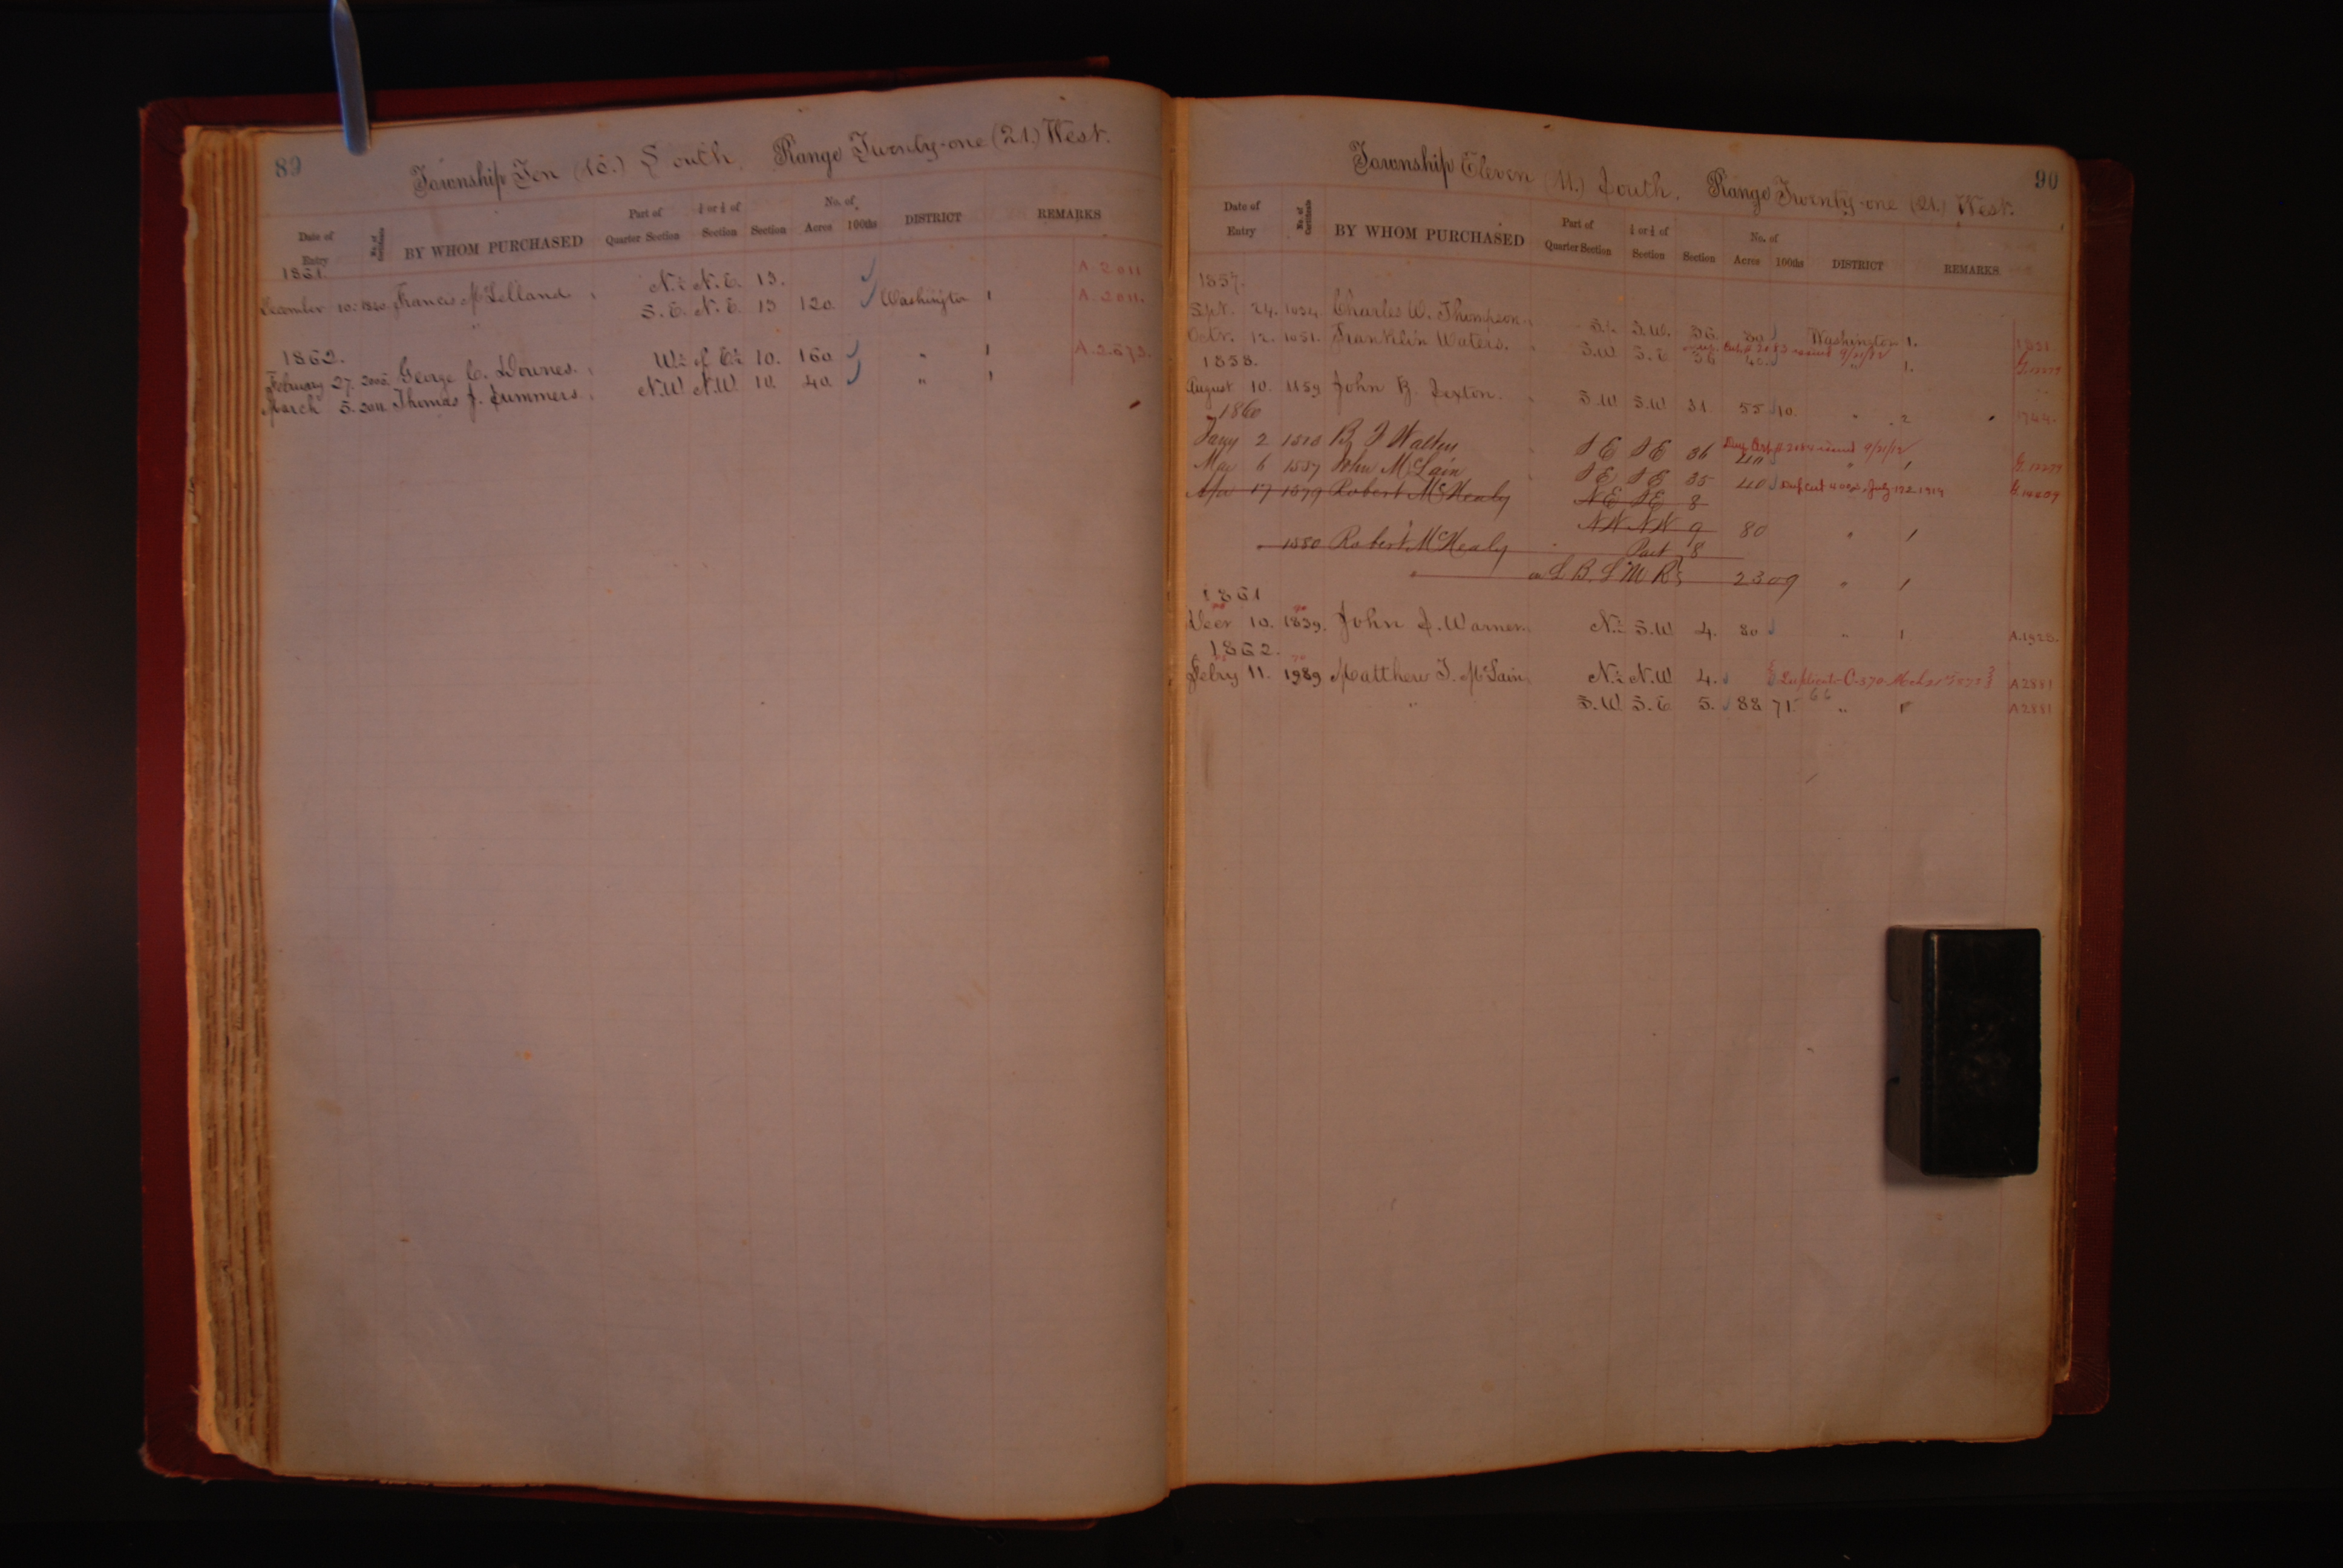 89
Township Ten (10.) South. Range Twenty-one (21.) West.
Date of Entry No. of Certificate BY WHOM PURCHASED Part of Quarter Section ½ or ¼ of Section Section No. of Acres 100ths DISTRICT REMARKS
1861.
December 10. 1840. Francis McLelland N.½ N.E. 13. A. 2011
" S.E. N.E. 13 120. Washington 1 A. 2011.
1862.
February 27. George C. Downes. W½ of E½ 10. 160 " 1 A. 2673.
March 5. 2011. Thomas J. Summers. N.W. N.W. 10. 40. " 1
90
Township Eleven (11.) South. Range Twenty-one (21.) West.
Date of Entry No. of Certificate BY WHOM PURCHASED Part of Quarter Section ½ or ¼ of Section Section No. of Acres 100ths DISTRICT REMARKS
1857.
Sept. 24. 1034. Charles W. Thompson. S½ S.W. 36. 80 Washington 1.
Dup. Cert. # 2083 issued 9/21/12
Octr. 12. 1051. Franklin Waters. S.W. S.E 36 40. " 1.
1858.
August 10. 1159 John B. Sexton. S.W. S.W. 31 55 10. " 2 1744.
1860
Dup. Cert # 2084 issued 9/21/12
Jany 2 1510 B J Walker S E S E 36 40 " 1
Mar 6 1557 John McLain S E S E 35 40 Dup Cert July 1914
Apr 17 1579 Robert McHenly N E S E 8
N W N W 9 80 " 1
" 1580 Robert McHenly Part 8
" on L B. L M R 23 09 " 1
1861
Decr 10. 1839. John S. Warner. N.½ S.W 4. 80 " 1 A.1928.
1862.
Febry 11. 1989 Matthew T. McLain. N.½ N.W 4. Duplicate C-370 A2881
" S.W. S.E 5. 88 71 66 " 1 A2881